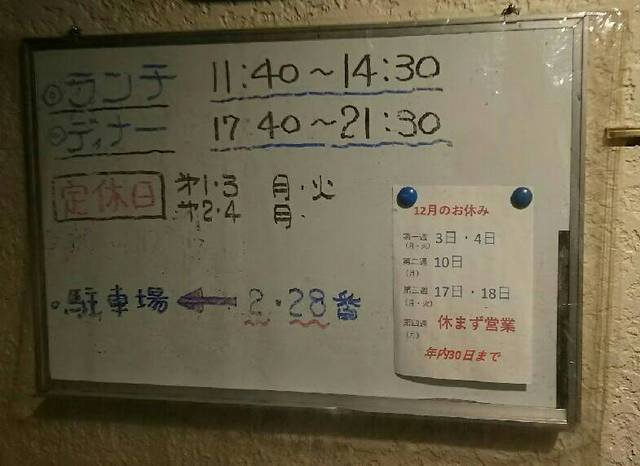 ◎ランチ 11:40～14:30
◎ディナー 17 40～21:30
定休日 第1・3 月・火
第2・4 月・
・駐車場 ← 2・28番
12月のお休み
第一週 3日・4日
(月・火)
第二週 10日
(月)
第三週 17日・18日
(月・火)
第四週 休まず営業
(月)
年内30日まで